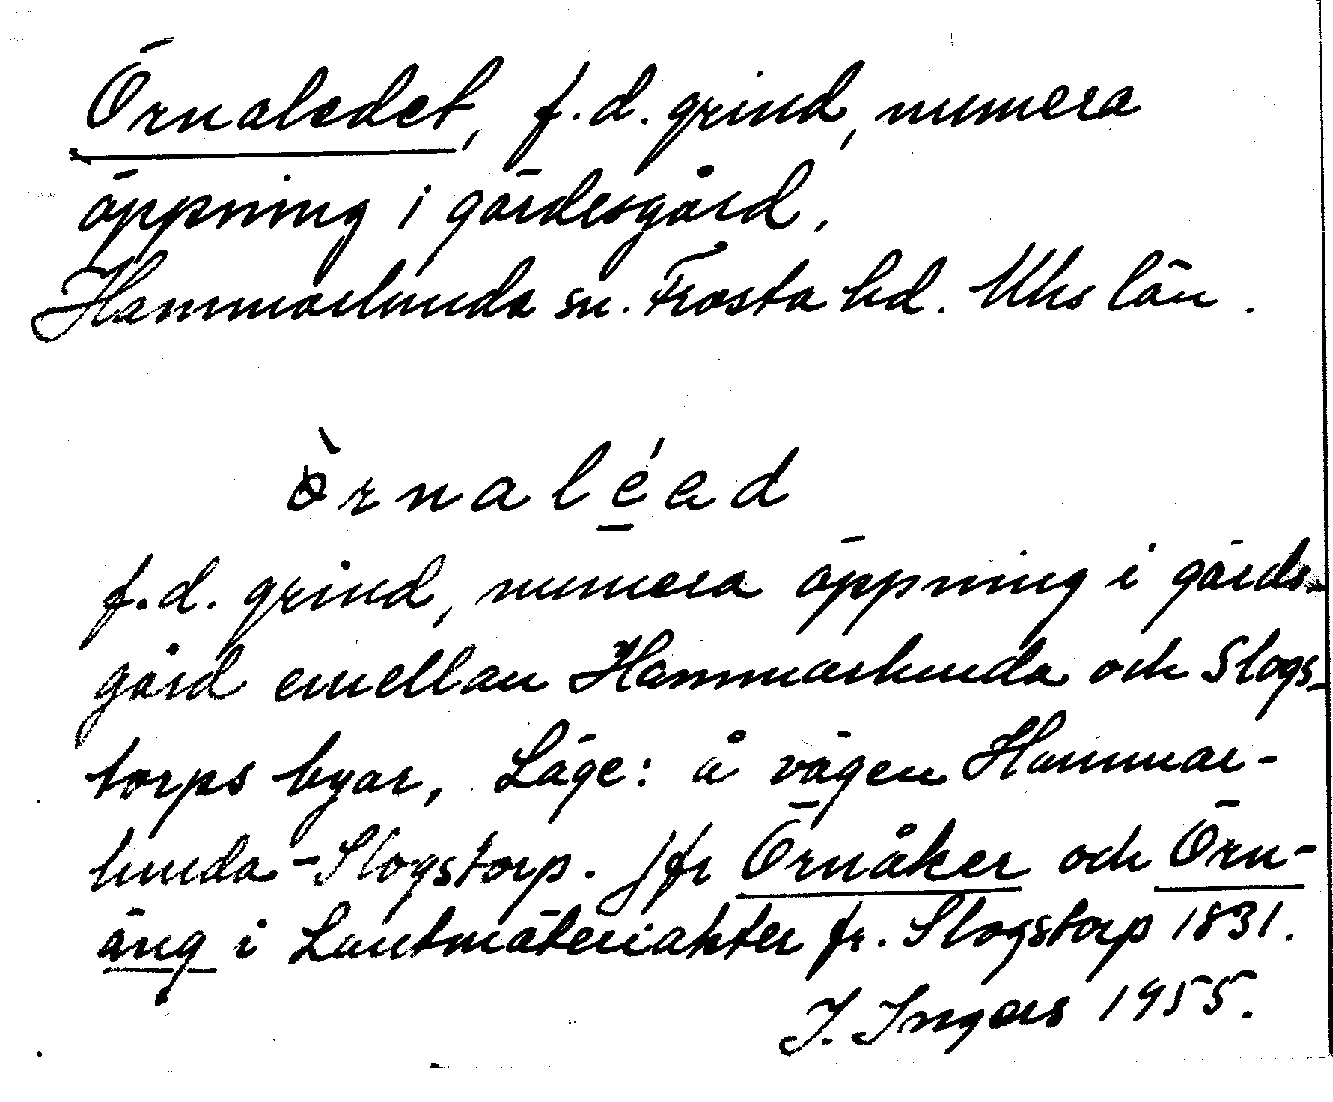 Örnaledet, f.d. grind, numera
öppning i gärdesgård.
Hammarlunda sn. Frosta hd. Mhs län.
ö̀rnalé̱ad
f.d. grind, numera öppning i gärds-
gård emellan Hammarlunda och Slogs-
torps byar, Läge: å vägen Hammar-
lunda-Slogstorp. Jfr Örnåker och Örn-
äng i Lantmäteriakter fr. Slogstorp 1831.
I. Ingers 1955.